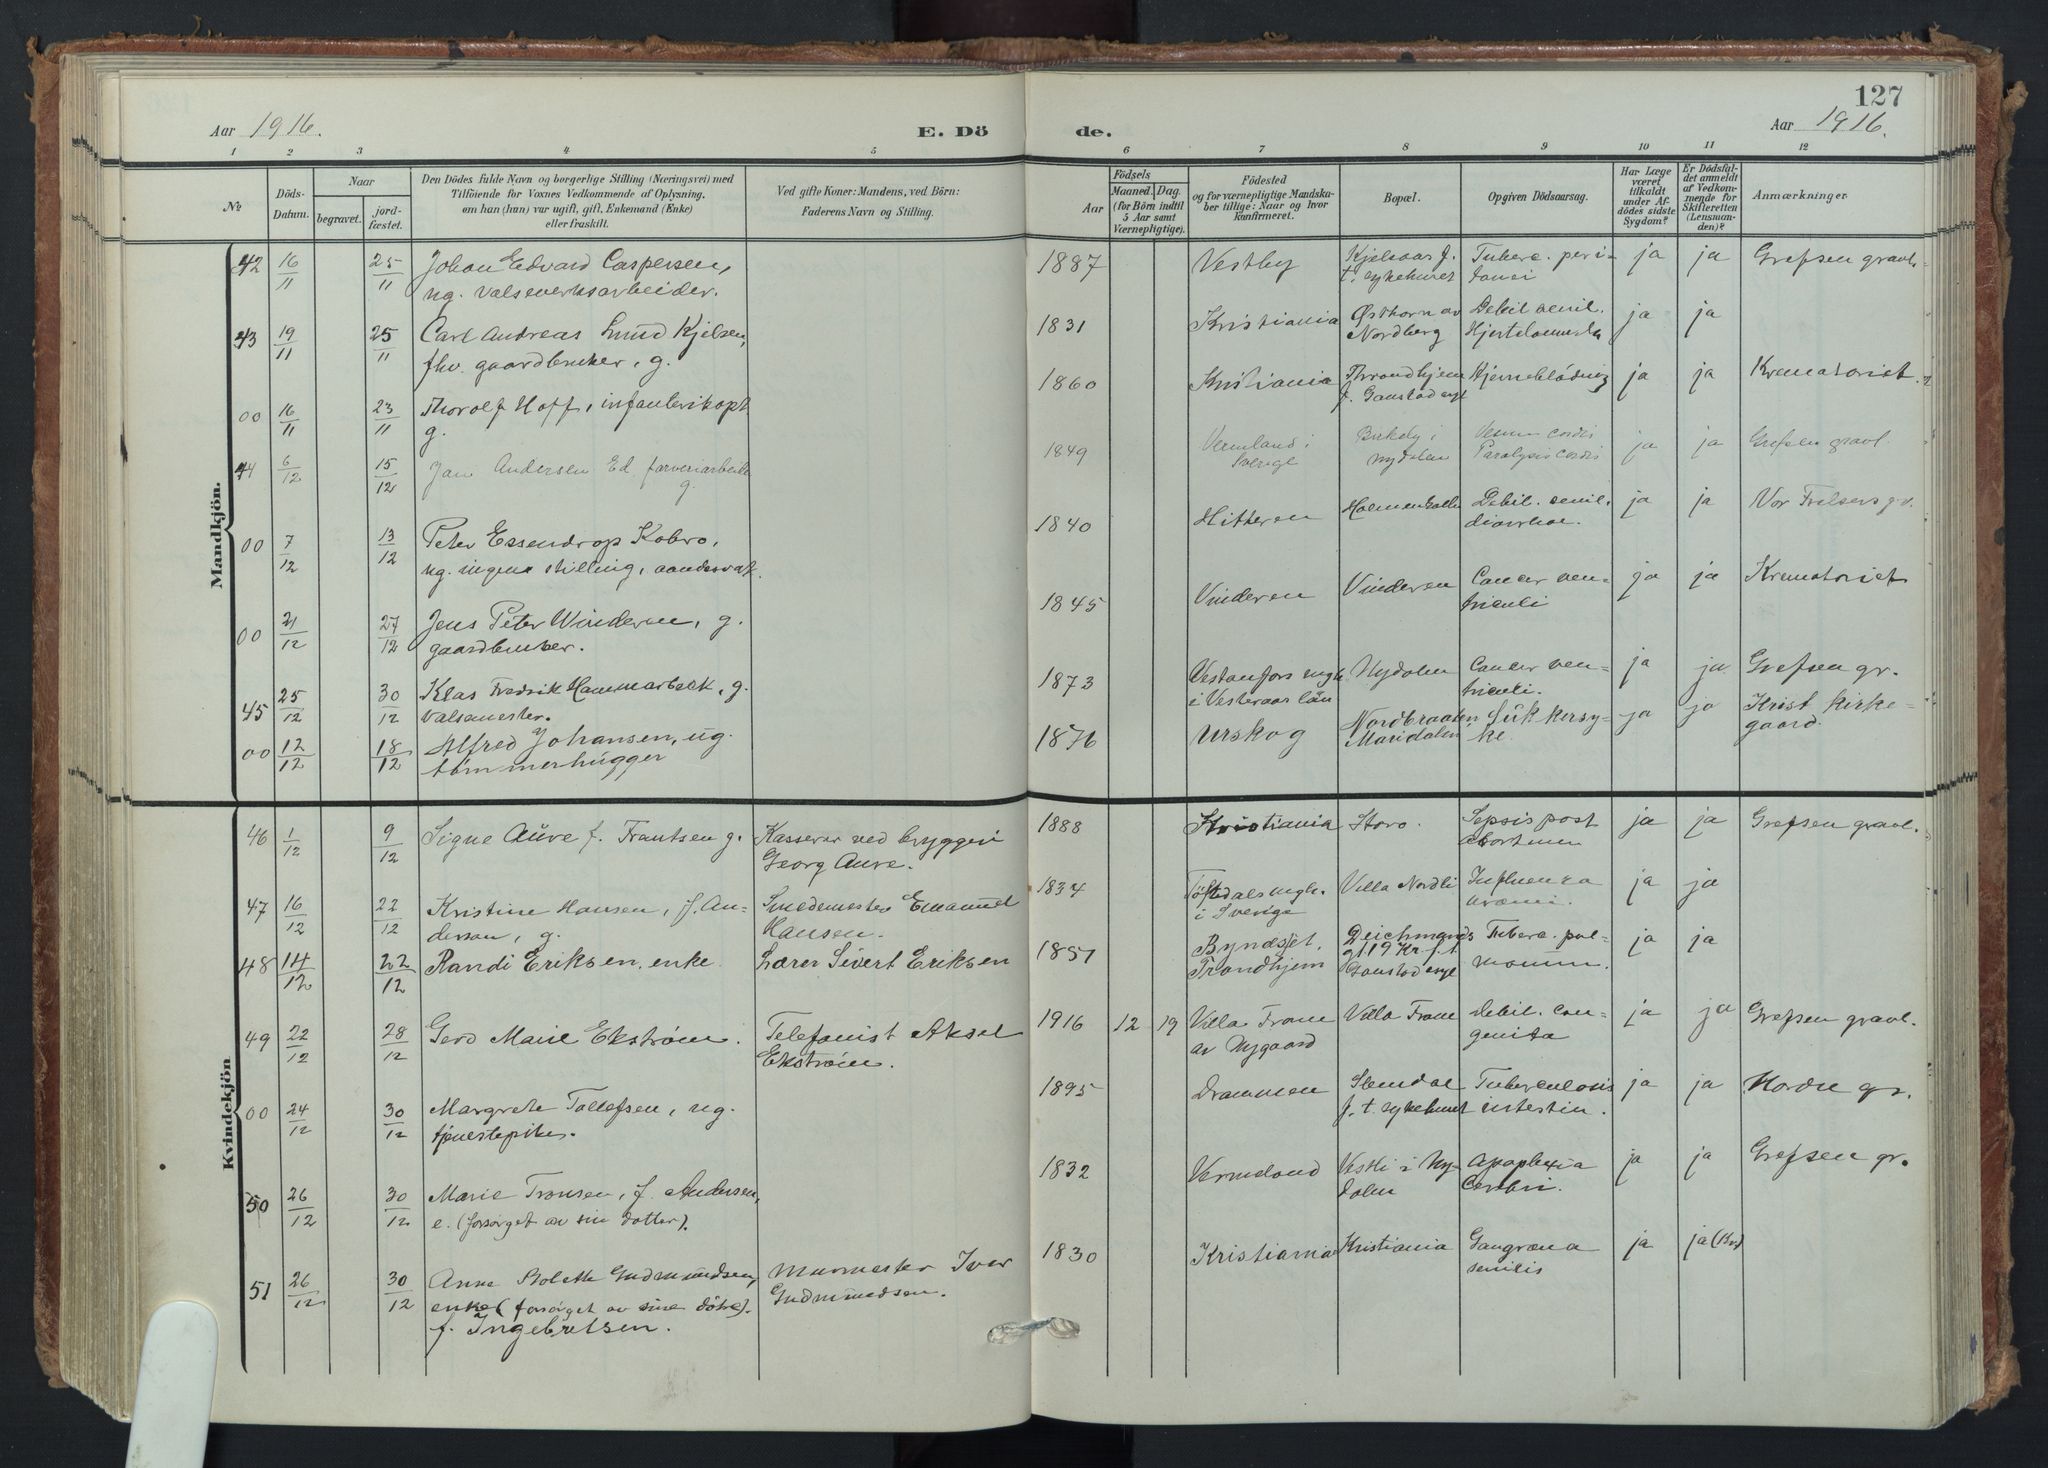 127
Aar 1916. E. Dö de. Aar 1916.
1 2 3 4 5 6 7 8 9 10 11 12
No
Döds-Datum.
Naar
begravet.
jord-fæstet.
Den Dödes fulde Navn og borgerlige Stilling (Næringsvei) med
Tilföiende for Voxnes Vedkommende af Oplysning,
om han (hun) var ugift, gift, Enkemand (Enke)
eller fraskilt.
Ved gifte Koner: Mandens, ved Börn:
Faderens Navn og Stilling.
Födsels
Aar
Maaned. Dag.
(for Börn indtil
5 Aar samt
Værnepligtige).
Födested
og for værnepligtige Mandska-
ber tillige: Naar og hvor
Konfirmeret.
Bopæl.
Opgiven Dödsaarsag.
Har Læge
været
tilkaldt
under Af-
dödes sidste
Sygdom?
Er Dödsfal-
det anmeldt
af Vedkom-
mende for
Skifteretten
(Lensman-
den)?
Anmærkninger.
Mandkjön.
42 16/11 25/11 Johan Edvard Caspersen, 1887 Vestby Kjelsaas f. Tuberc. peri- ja ja Grefsen gravl.
ug. valseverksarbeider. t. sykehuset tonei
43 19/11 25/11 Carl Andreas Lund Kjelsen, 1831 Kristiania Østhorn av Debil. senil. ja ja
fhv. gaardbruker, g. Nordberg
00 16/11 23/11 Thorolf Hoff, infanterikapt 1860 Kristiania Throndhjem Hjerneblødning ja ja Krematoriet.
g. f. Gaustad syl
44 6/12 15/12 Jan Andersen Ed farveriarbeide 1849 Vermland i Birkely i Vitium cordis ja ja Grefsen gravl.
g. Sverige Nydalen Paralysis cordis
00 7/12 13/12 Peter Essendrop Kobro, 1840 Hitteren Holmenkollen Debil. senil. ja ja Vor Frelsers gr.
ug. ingen stilling, aandssvak. diarrhoe.
00 21/12 27/12 Jens Peter Winderen, g. 1845 Vinderen Vinderen Cancer ven- ja ja Krematoriet
gaardbruker. triculi
45 25/12 30/12 Klas Fredrik Hammarbeck, g. 1873 Vestanfors sogn Nydalen Cancer ven- ja ja Grefsen gr.
valsemester. i Vesteraas län triculi.
00 12/12 18/12 Alfred Johansen, ug. 1876 Urskog Nordbraaten Sukkersy- ja ja Krist kirke-
tømmerhugger Maridalen ke. gaard.
Kvindekjön
46 1/12 9/12 Signe Aure f. Frantsen g. Kasserer ved bryggeri 1888 Kristiania Storo. Sepsis post ja ja Grefsen gravl.
Georg Aure. abortum
47 16/12 22/12 Kristine Hansen, f. An- Smedemester Emanuel 1834 Töftedals sogn. Villa Nordli Influenza ja ja
dersson, g. Hansen. i Sverige uræmi.
48 14/12 22/12 Randi Eriksen, enke Lærer Sivert Eriksen 1857 Byneset, Deichmands Tuberc. pul- ja ja
Trondhjem gt 19 Kr. f. t. monum.
Gaustad syl
49 22/12 28/12 Gerd Marie Ekstrøm. Telefonist Aksel 1916 12 19 Villa Fram Villa Fram Debil. con- ja ja Grefsen gravl.
Ekstrøm. av Nygaard genita
00 24/12 30/12 Margrete Tollefsen, ug. 1895 Drammen Slemdal Tuberculosis ja ja Nordre gr.
tjenestepike. f. t. sykehuset intestin.
50 26/12 30/12 Marie Tronsen, f. Andersen, 1832 Vermeland Vestli i Ny- Apoplexia ja ja Grefsen gr.
e. (forsørget av sin datter). dalen Cerebri.
51 26/12 30/12 Anne Gudmundsen, Murmester Iver 1830 Kristiania Kristiania Gangræna ja ja (Kr.)
enke (forsørget av sine døtre). Gudmundsen. senilis
f. Ingebretsen.